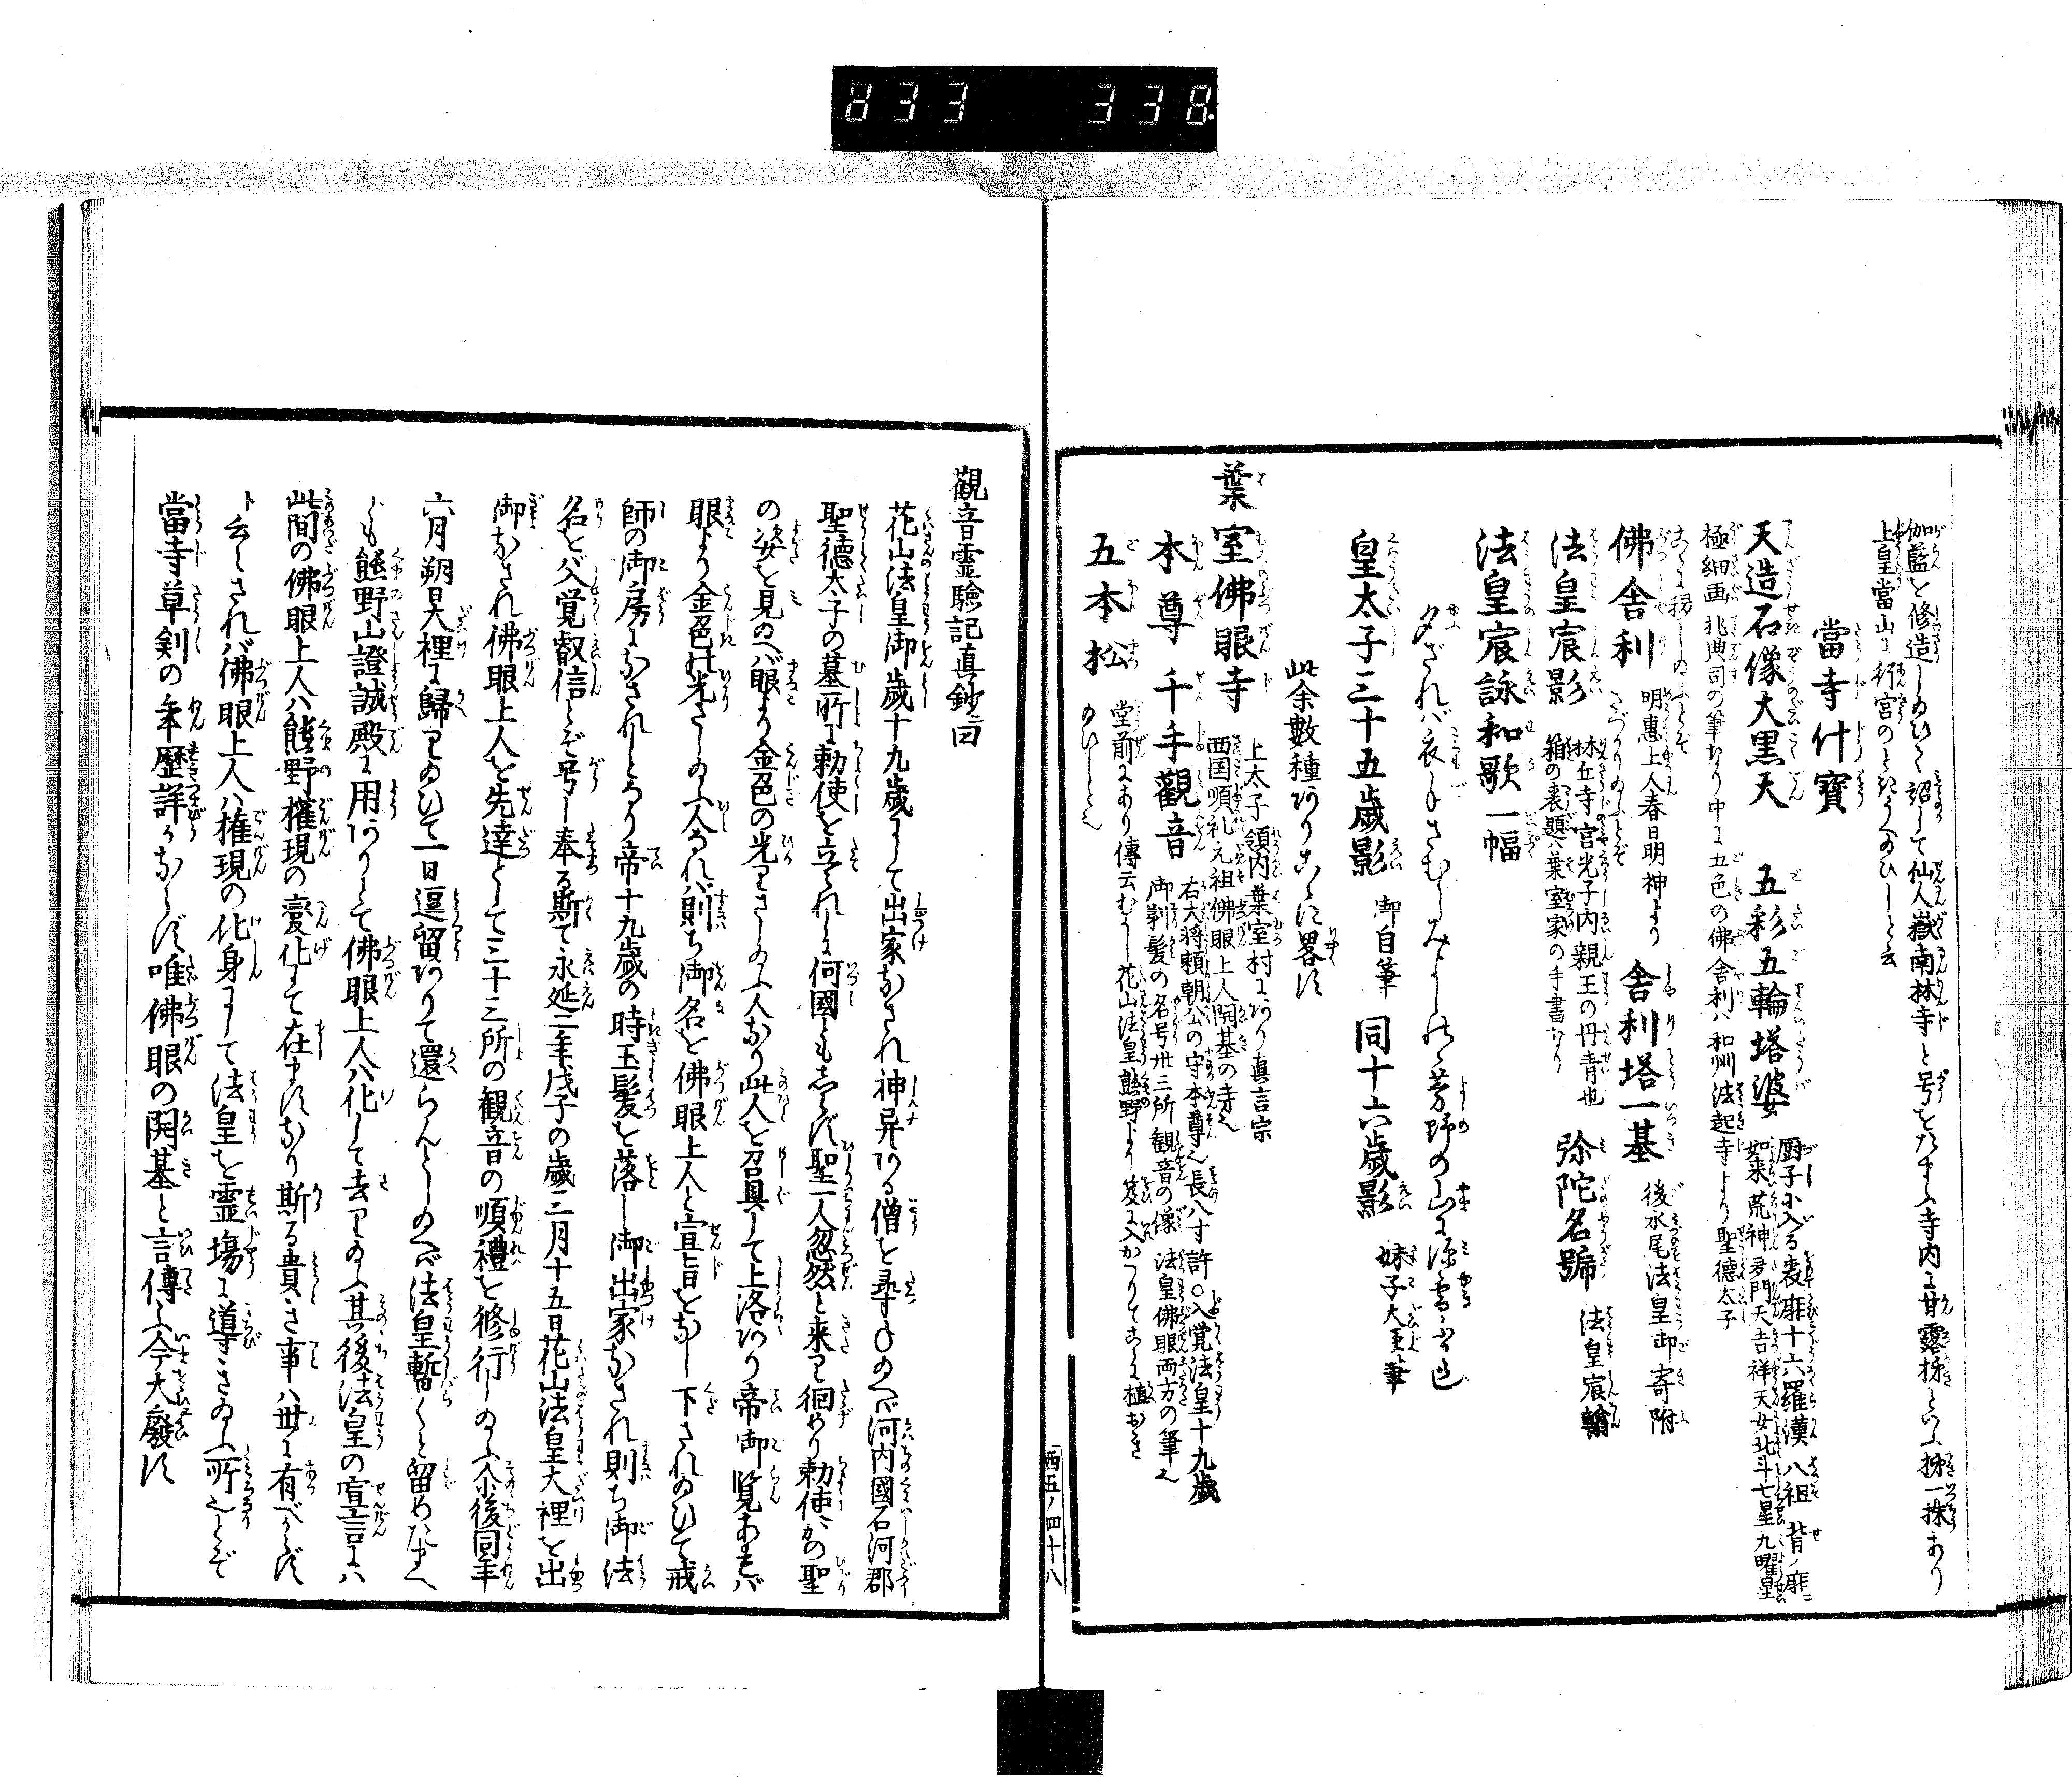 833 338
伽藍を修造し給ひて詔して仙人嶽南林寺と号を給ふ寺内に甘露掬といふ掬一株あり
上皇當山に行宮のとき
當寺什寳
天造石像大黒天 五彩五輪塔婆 厨子に入る表扉十六羅漢八祖背ノ扉ニ
如来荒神多門天吉祥天女北斗七星九曜星
極細画兆典司の筆なり中に五色の佛舎利ハ和州法起寺より聖徳太子
佛舎利 明惠上人春日明神より 舎利塔一基 後水尾法皇御寄附
法皇宸影 林丘寺宮光子内親王の丹青也
箱の表題ハ葉室家の手書なり 弥陀名號 法皇宸翰
法皇宸詠和歌一幅
夕ざれバ衣手さむしみよしのゝ芳野の山に
皇太子三十五歳影 御自筆 同十六歳影 妹子大臣筆
此余數種ありこゝに畧す
葉室佛眼寺 上太子領内葉室村にあり真言宗
西国順礼元祖佛眼上人開基の寺也
本尊千手觀音 右大将頼朝公の守本尊也長八寸許○入覚法皇十九歳
御剃髪の名号丗三所観音の像法皇佛眼両方の筆也
五本松 堂前にあり傳云むかし花山法皇熊野より
西五ノ四十八
觀音霊驗記真鈔ニ曰
花山法皇御歳十九歳にして出家なされ神昇ある僧を尋ね給へバ河内國石河郡
聖徳太子の墓所に勅使を立られしに何國ともしらず聖一人忽然と来り徊めり勅使かの聖
の姿を見給へバ眼より金色の光りさし給ふ人なり此人を召具して上洛あり帝御覧あれバ
眼より金色の光さし給ふ人なれバ則ち御名を佛眼上人と宣旨をなし下され給ひて戒
師の御房になされしとなり帝十九歳の時玉髪を落し御出家なされ則ち御法
名をバ入覚叡信とぞ号し奉る斯て永延二年戊子の歳三月十五日花山法皇大裡を出
御なされ佛眼上人を先達として三十三所の観音の順禮を修行し給ふ尒後同年
六月朔日大裡に歸り給ひて一日逗留ありて還らんとし給へバ法皇暫くと留めたまへ
ども熊野山證誠殿に用ありとて佛眼上人ハ化して去り給ふ其後法皇の宣言にハ
此間の佛眼上人ハ熊野權現の變化にて在ますなり斯る貴き事ハ丗に有べからず
ト云々されバ佛眼上人ハ権現の化身にして法皇を霊塲に導き給ふ所也とぞ
當寺草剏の年歴詳かならず唯佛眼の開基と言傳ふ今大廢す